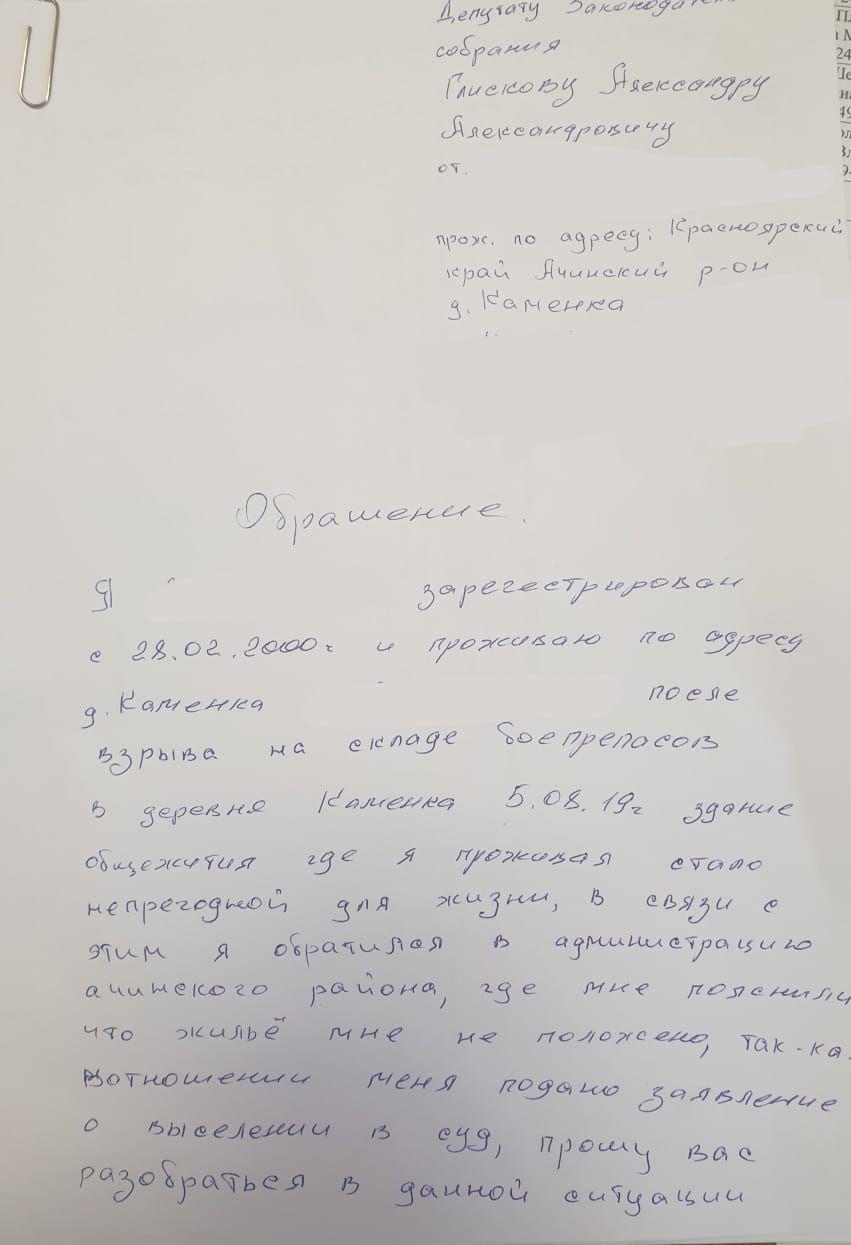 Депутату Законодате
собрания
Глискову Александру
Александровичу
от.
прож. по адресу: Красноярский
край Ачинский р-он
д. Каменка
Обрашение.
Я зарегестрирован
с 28.02.2000г и проживаю по адресу
д. Каменка после
взрыва на складе боепрепасов
в деревня Каменка 5.08.19г здание
общежития где я проживая стало
непрегодной для жизни, в связи с
этим я обратился в администрацию
ачинского района, где мне пояснили
что жильё мне не положено, так-ка
вотношении меня подано заявление
о выселении в суд, прошу вас
разобраться в данной ситуации